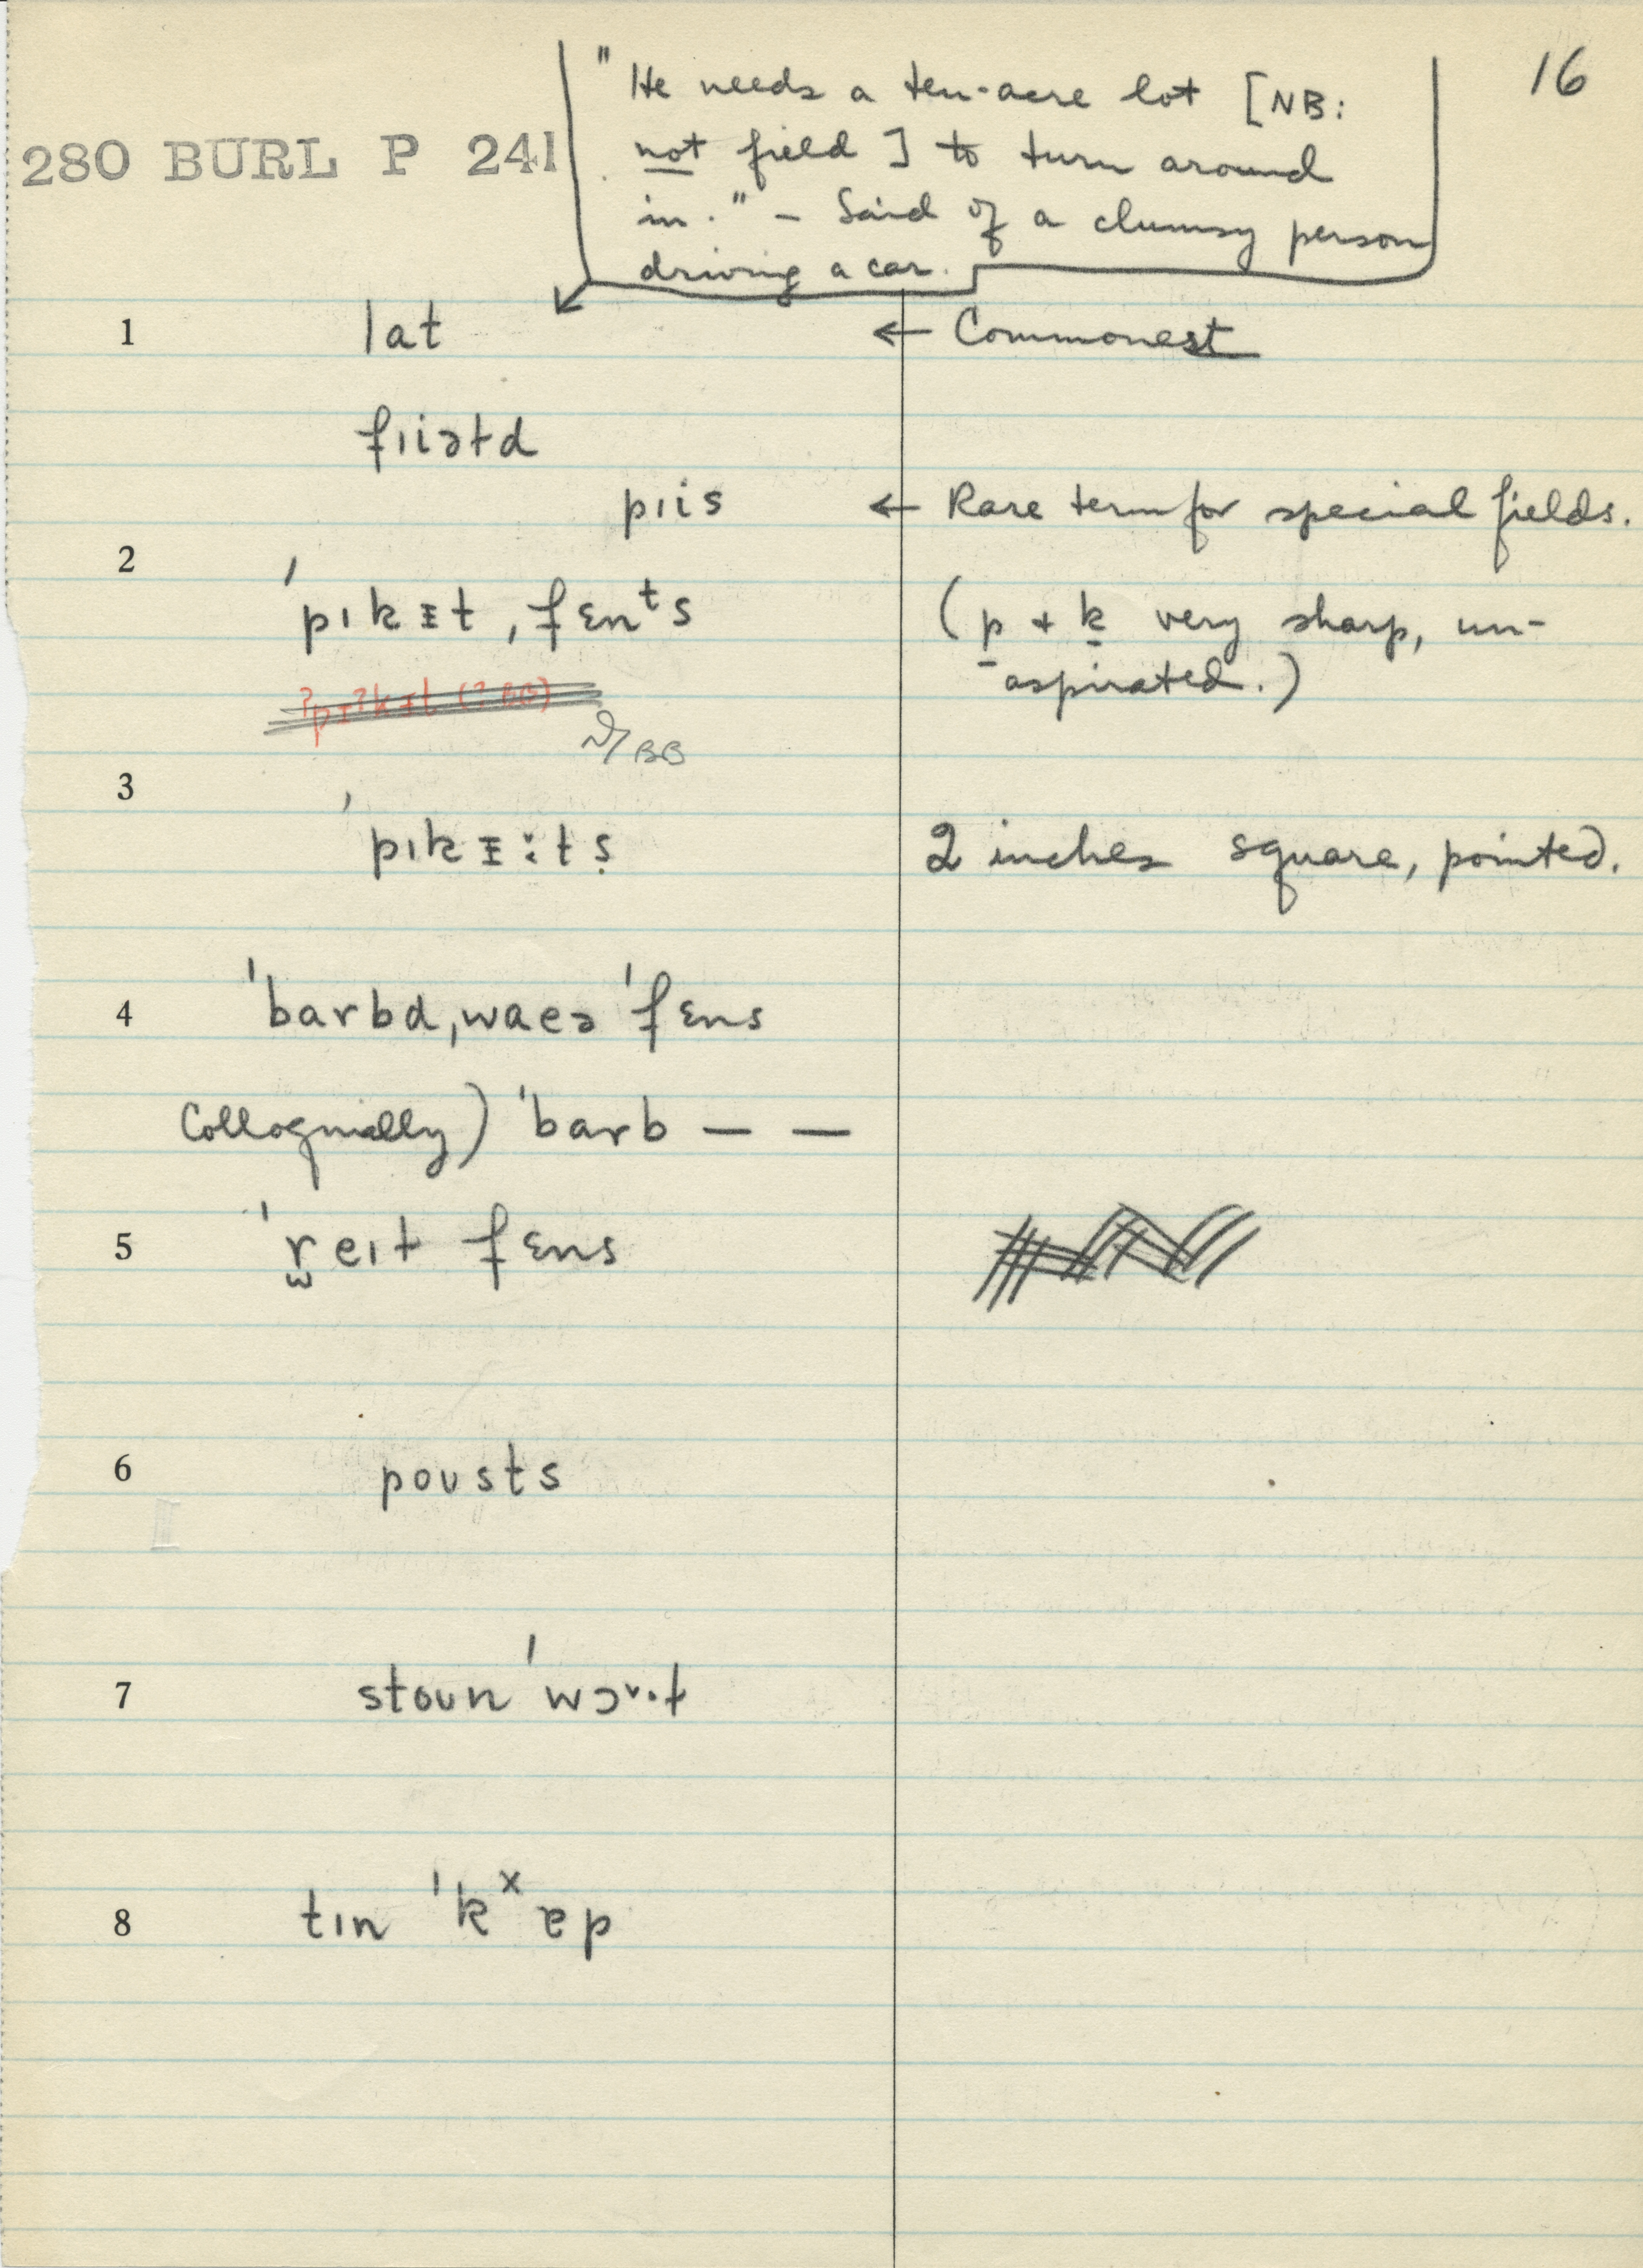 16
" He needs a ten-acre lot [NB:
280 BURL P 241
not field] to turn around
in." – Said of a clumsy person
driving a car.
1 lat ← Commonest
fɪiəɫd
pɪis ← Rare term for special fields.
2 ˈpɪkᵻt ˌfɛnᵗs (p + k very sharp, un-
aspirated.)
ˀpɪˀkɪt (? BB)
BB
3 ˈpɪkᵻ:ts̩ 2 inches square, pointed.
4 ˈbarbd ˌwaeə ˈfɛns
Colloquially) ˈbarb — —
5 ˈreɪɫ fɛns
6 poʊsts
7 stoʊn ˈwɔ˅·ɫ
8 tɪn ˈkˣɐp